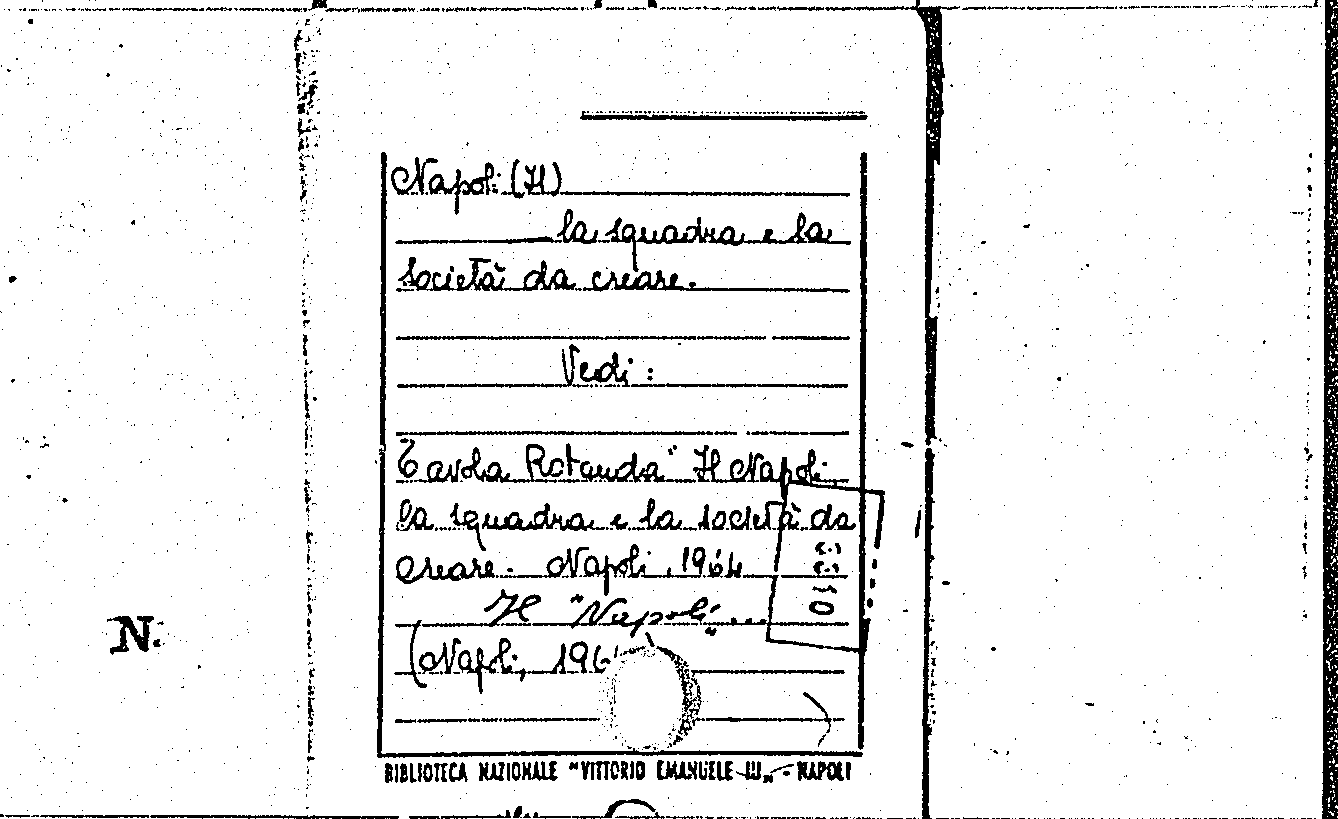 Napoli (Il)
la squadra e la
società da creare.
Vedi:
Tavola Rotonda "Il Napoli
la squadra e la società da
creare. Napoli, 1964
Il "Napoli"...
(Napoli, 196
)
N.
BIBLIOTECA NAZIONALE "VITTORIO EMANUELE III„ - NAPOLI